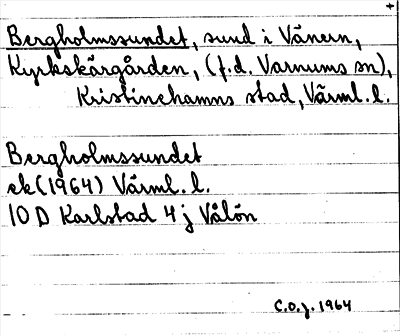 +
Bergholmssundet, sund i Vänern,
Kyrkskärgården, (f.d. Varnums sn),
Kristinehamns stad, Värml. l.
Bergholmssundet
ek (1964) Värml. l.
10 D Karlstad 4 j Vålön
C.O.J. 1964